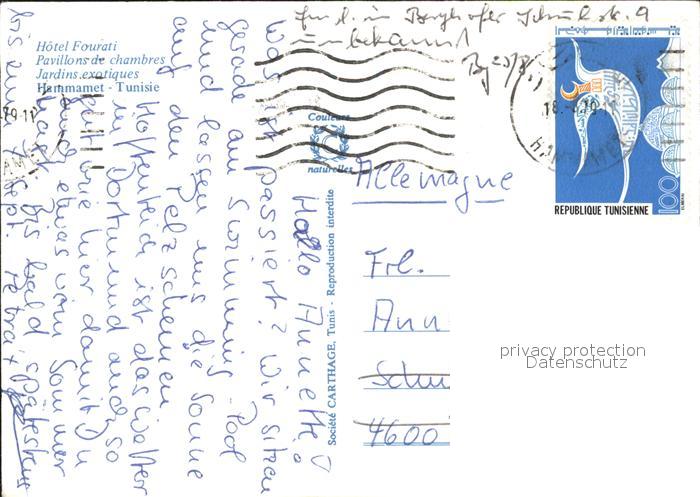 Frl. in Berghofer Schulstr. 9
unbekannt
Hôtel Fourati
Pavillons de chambres
Jardins exotiques
Hammamet - Tunisie
Couleurs
naturelles
Société CARTHAGE, Tunis - Reproduction interdite
Hallo Annette!
Was ist passiert? Wir sitzen
gerade am Swimming-Pool
und lassen uns die Sonne
auf den Pelz scheinen.
Hoffentlich ist das Wetter
in Dortmund auch so
gut wie hier damit Du
auch etwas vom Sommer
hast. Bis bald spätestens
bis zum 1. Sept. Petra +
Allemagne
Frl.
Ann
Schu
4600
privacy protection
Datenschutz
REPUBLIQUE TUNISIENNE
100